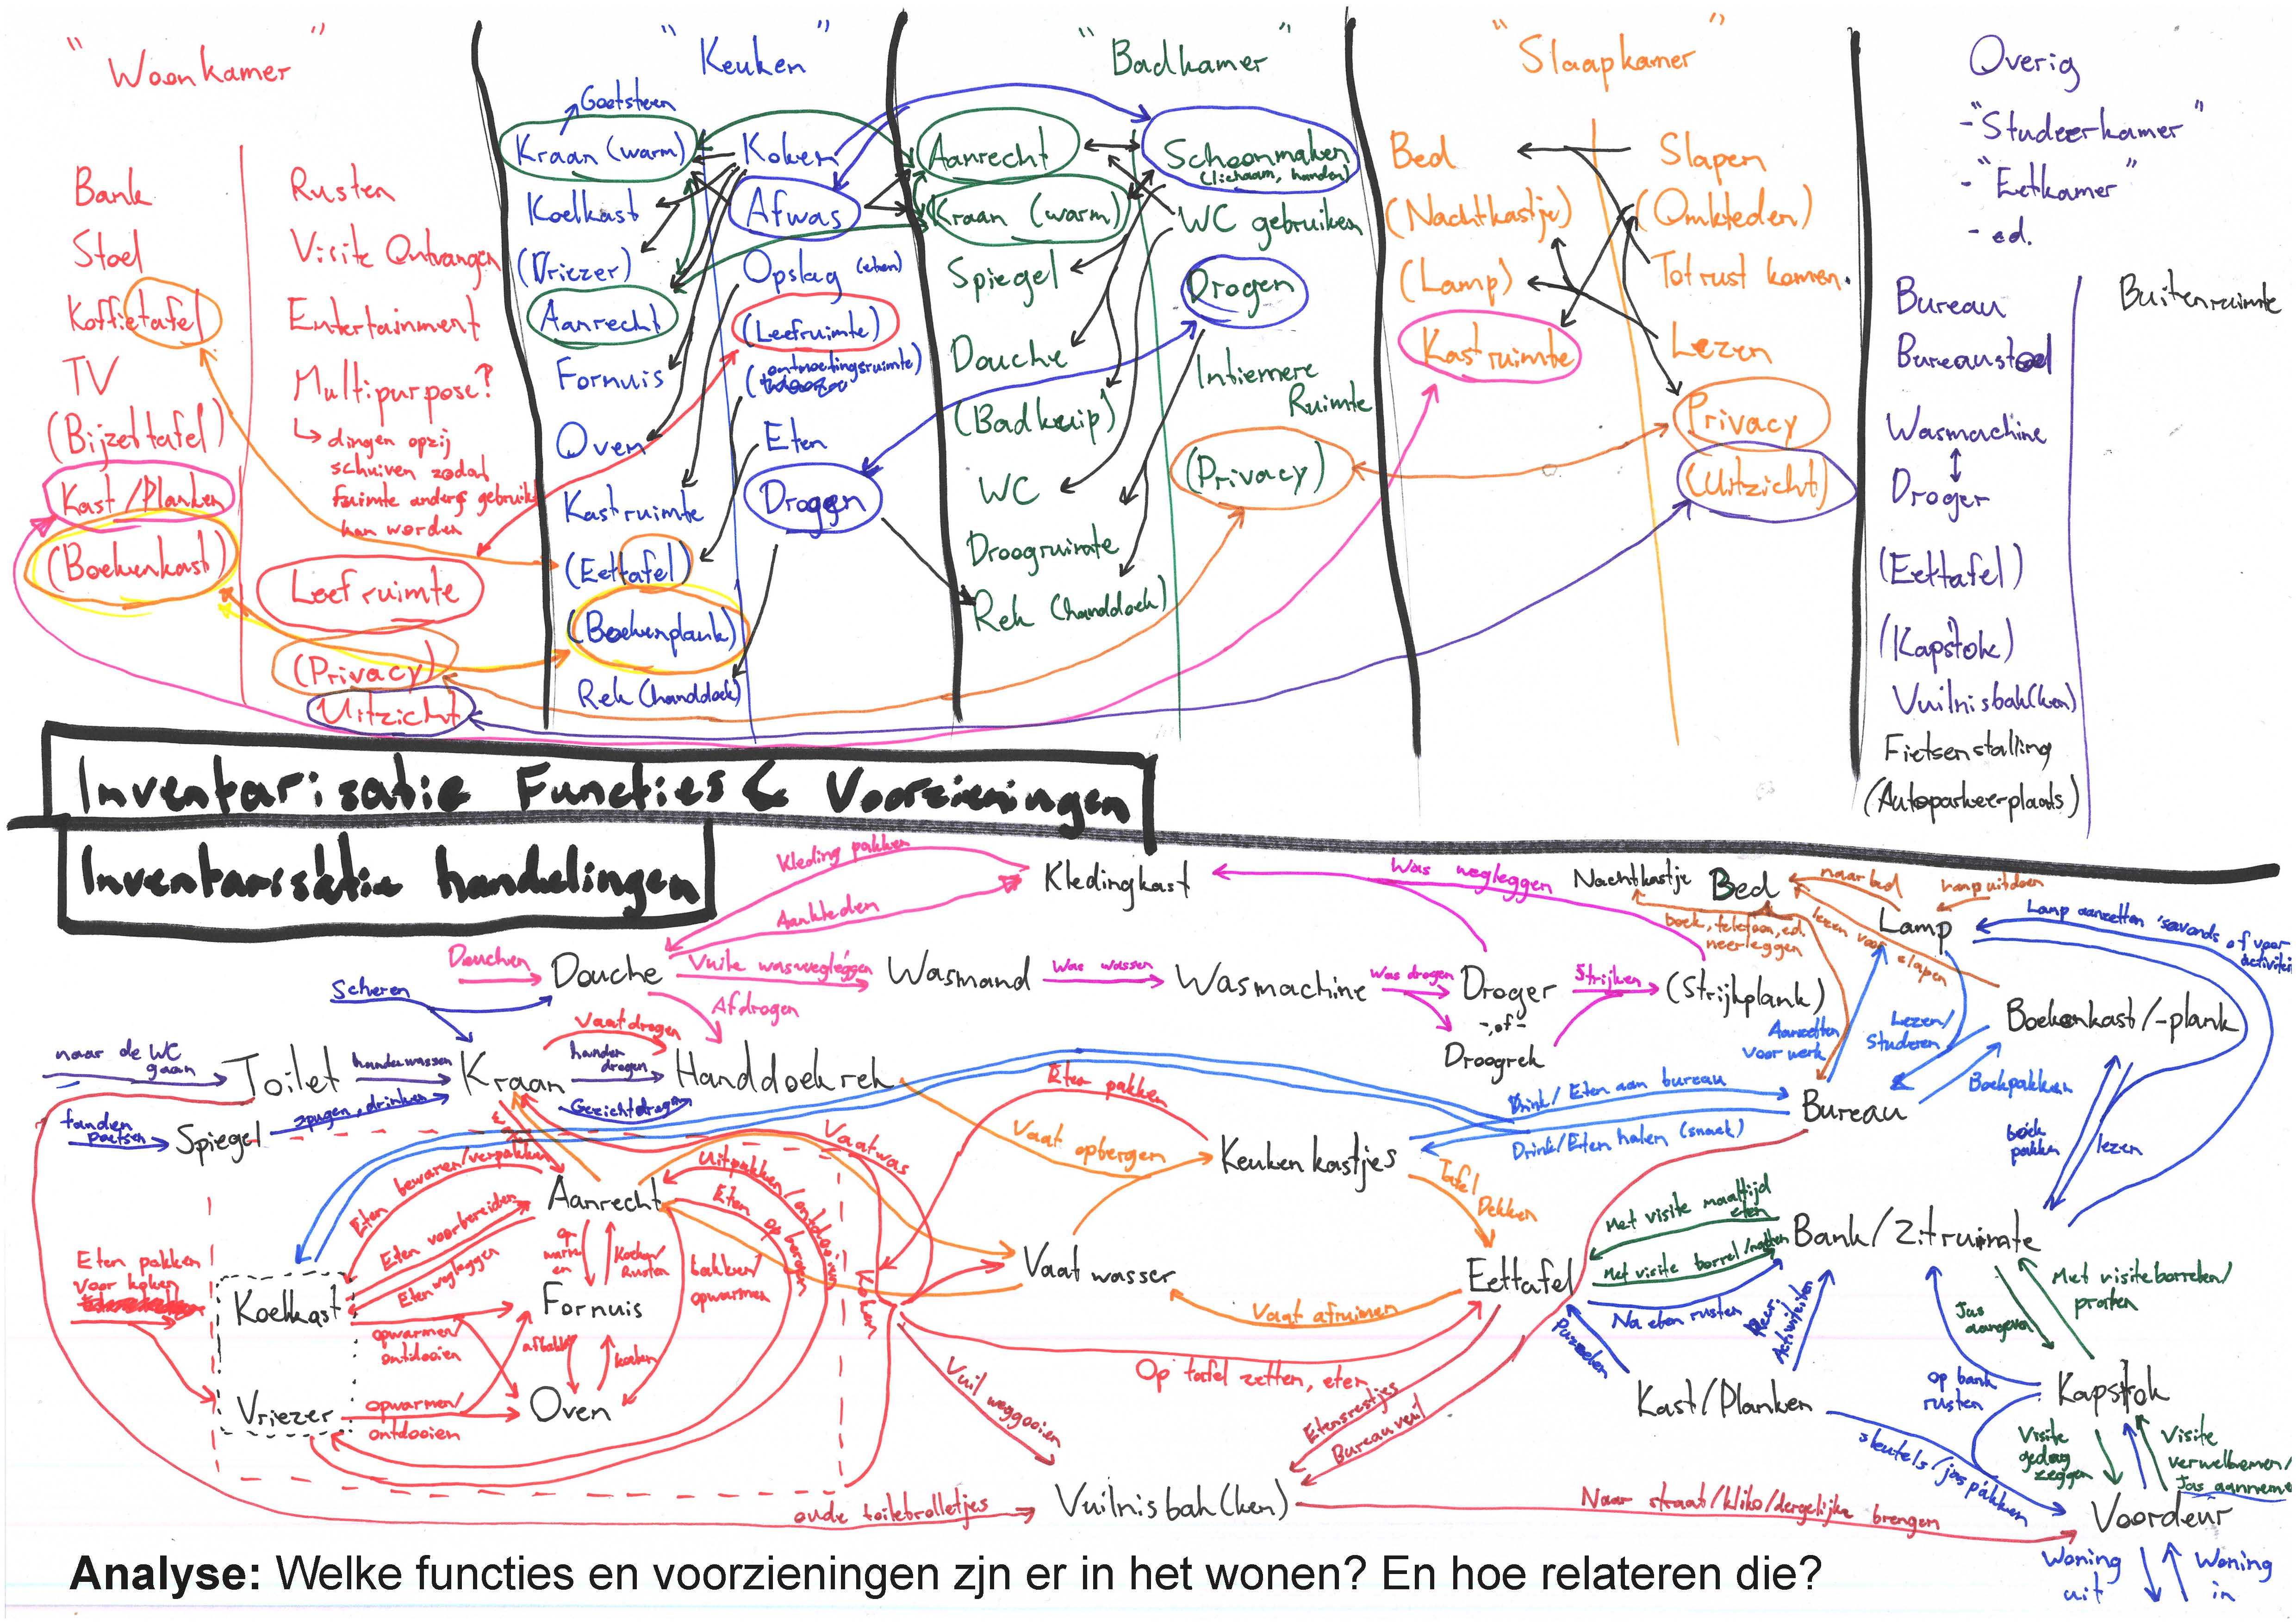 "Woonkamer"
Bank
Stoel
Koffietafel
TV
(Bijzettafel)
Kast/Planken
(Boekenkast)
Rusten
Visite Ontvangen
Entertainment
Multipurpose?
↳ dingen opzij
schuiven zodat
ruimte anders gebruikt
kan worden
Leefruimte
(Privacy)
Uitzicht
"Keuken"
Gootsteen
Kraan (warm)
Koelkast
(Vriezer)
Aanrecht
Fornuis
Oven
Kastruimte
(Eettafel)
(Boekenplank)
Rek (handdoek)
Koken
Afwas
Opslag (eten)
(Leefruimte)
(ontmoetingsruimte)
Eten
Drogen
"Badkamer"
Aanrecht
Kraan (warm)
Spiegel
Douche
(Badkuip)
WC
Droogruimte
Rek (handdoek)
Schoonmaken
(lichaam, handen)
WC gebruiken
Drogen
Intiemere
Ruimte
(Privacy)
"Slaapkamer"
Bed
(Nachtkastje)
(Lamp)
Kastruimte
Slapen
(Omkleden)
Tot rust komen.
Lezen
Privacy
(Uitzicht)
Overig
- "Studeerkamer"
- "Eetkamer"
- ed.
Bureau
Bureaustoel
Wasmachine
Droger
(Eettafel)
(Kapstok)
Vuilnisbak(ken)
Fietsenstalling
(Autoparkeerplaats)
Buitenruimte
Inventarisatie Functies & Voorzieningen
Inventarisatie handelingen
Kleding pakken
Aankleden
Kledingkast
Was wegleggen
Nachtkastje
Bed
naar bed
lamp uitdoen
Lamp
Lamp aanzetten 's avonds of voor
activiteit
boek, telefoon, ed.
neerleggen
lezen voor
slapen
Douchen
Douche
Vuile was wegleggen
Wasmand
Was wassen
Wasmachine
Was drogen
Droger
-of-
Droogrek
Strijken
(Strijkplank)
Afdrogen
Scheren
Vaat drogen
Aanzetten
voor werk
Lezen/
Studeren
Boekenkast/-plank
naar de WC
gaan
Toilet
handen wassen
Kraan
handen
drogen
Handdoekrek
Gezicht drogen
Boek pakken
Bureau
tanden
poetsen
Spiegel
spugen, drinken
Eten pakken
Drink/Eten aan bureau
Drink/Eten halen (snack)
Vaatwas
Vaat opbergen
Keukenkastjes
Tafel
Dekken
boek
pakken
lezen
Eten bewaren/verpakken
Uitpakken/ontdooien
Aanrecht
Eten op bergen
Eten voorbereiden
Eten wegleggen
op
warm
en
Koken/
Rusten
bakken/
opwarmen
Koken
Eten pakken
voor koken
Koelkast
Fornuis
opwarmen/
ontdooien
afbakken
koken
Vriezer
opwarmen/
ontdooien
Oven
Vaatwasser
Vaat afruimen
Eettafel
Met visite maaltijd
eten
Met visite borrel/natten
Bank/Zitruimte
Na eten rusten
Puzzelen
Activiteiten
Kast/Planken
Met visite borrelen/
praten
Jas
aangeven
op bank
rusten
Kapstok
Visite
gedag
zeggen
Visite
verwelkomen/
Jas aannemen
sleutels/jas pakken
Voordeur
Woning
uit
Woning
in
Op tafel zetten, eten
Vuil weggooien
Etensrestjes
Bureauvuil
oude toiletrolletjes
Vuilnisbak(ken)
Naar straat/kliko/dergelijke brengen
Analyse: Welke functies en voorzieningen zjn er in het wonen? En hoe relateren die?